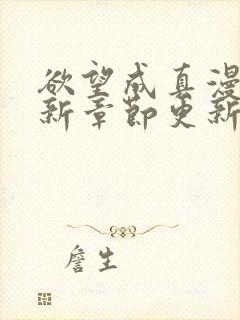 欲望成真漫
新章節更新
詹生